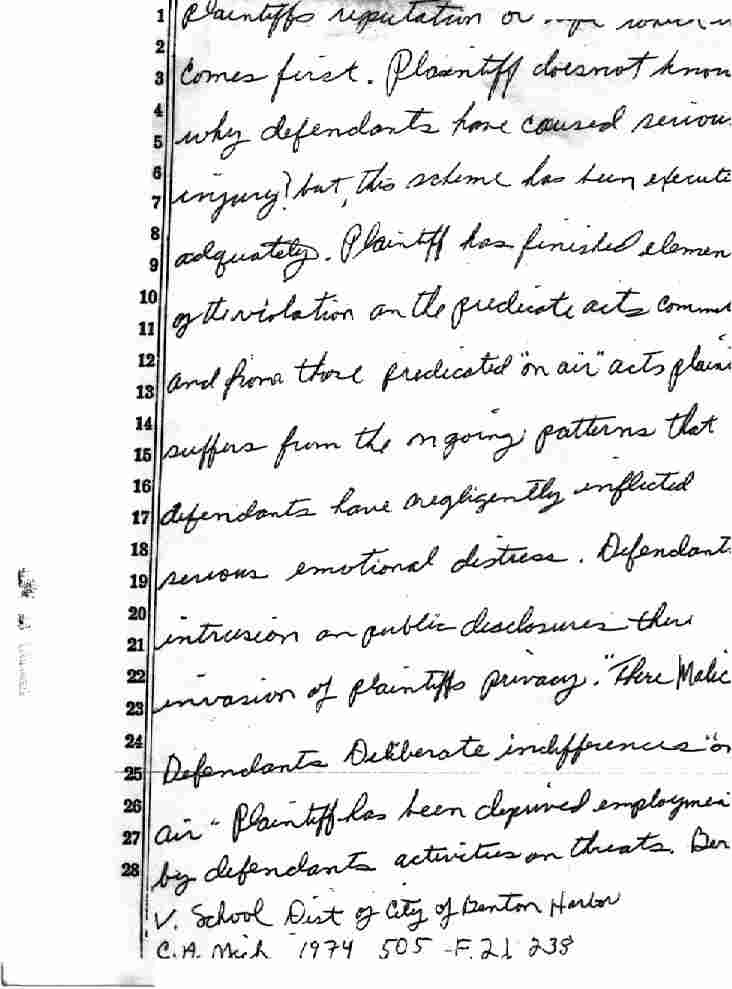 Plaintiffs reputation or
comes first. Plaintiff doesnot know
why defendants have caused seriou
injury? but, this scheme has been execute
adquately. Plaintiff has finished elemen
of the violation on the predicate acts comm
and from those predicated "on air" acts plain
suffers from the ongoing patterns that
defendants have negligently inflicted
serious emotional distress. Defendant
intrusion on public disclosures there
invasion of plaintiffs privacy. "There Malic
Defendants Deliberate indifferences "on
air" Plaintiff has been deprived employmen
by defendants activities on threats. Ber
V. School Dist of City of Benton Harbor
C.A. Mich 1974 505 F.2d 238